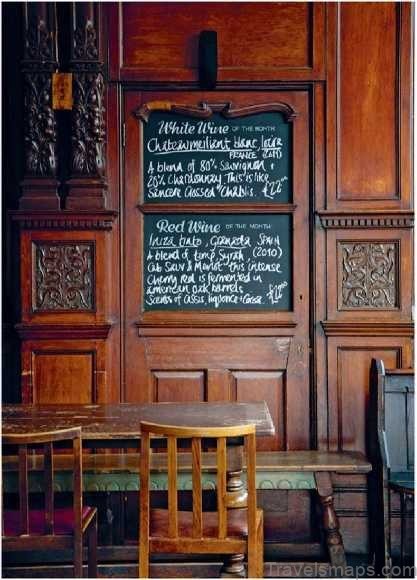 White Wine OF THE MONTH
Chateaumeillant blanc, Loire
FRANCE (2011)
A blend of 80% Sauvignon +
20% Chardonnay This is like
Sancerre Crossed Chablis. £22.00
Red Wine OF THE MONTH
tinto, SPAIN
A blend of temp, Syrah, (2010)
Cab Sauv & Merlot this intense
Cherry red is fermented in
american oak barrels
Scents of Cassis, liquorice + £21.00
Travelsmaps.com